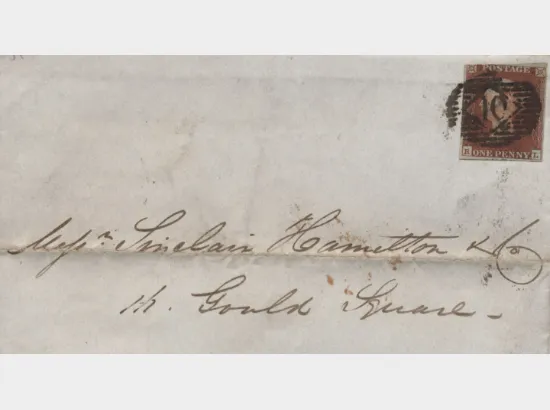 POSTAGE
ONE PENNY
Messrs Sinclair Hamilton & Co
Gould Square